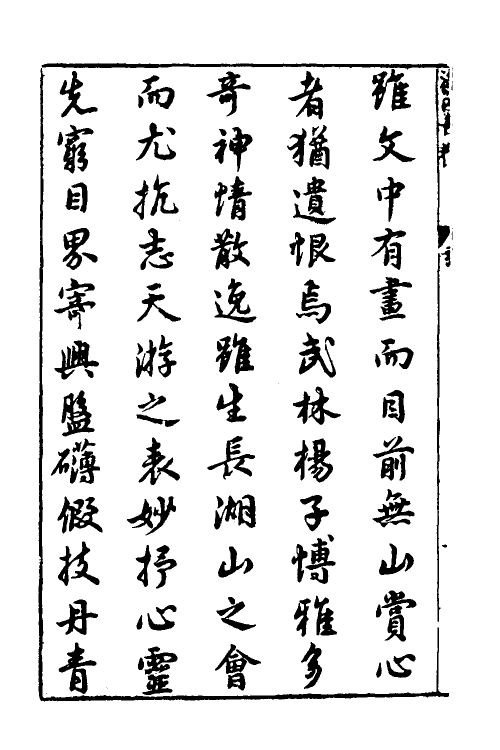 雖文中有畫而目前無山賞心
者猶遺恨焉武林楊子博雅多
奇神情散逸雖生長湖山之會
而尤抗志天游之表妙抒心靈
先窮目界寄興盤礴假技丹青